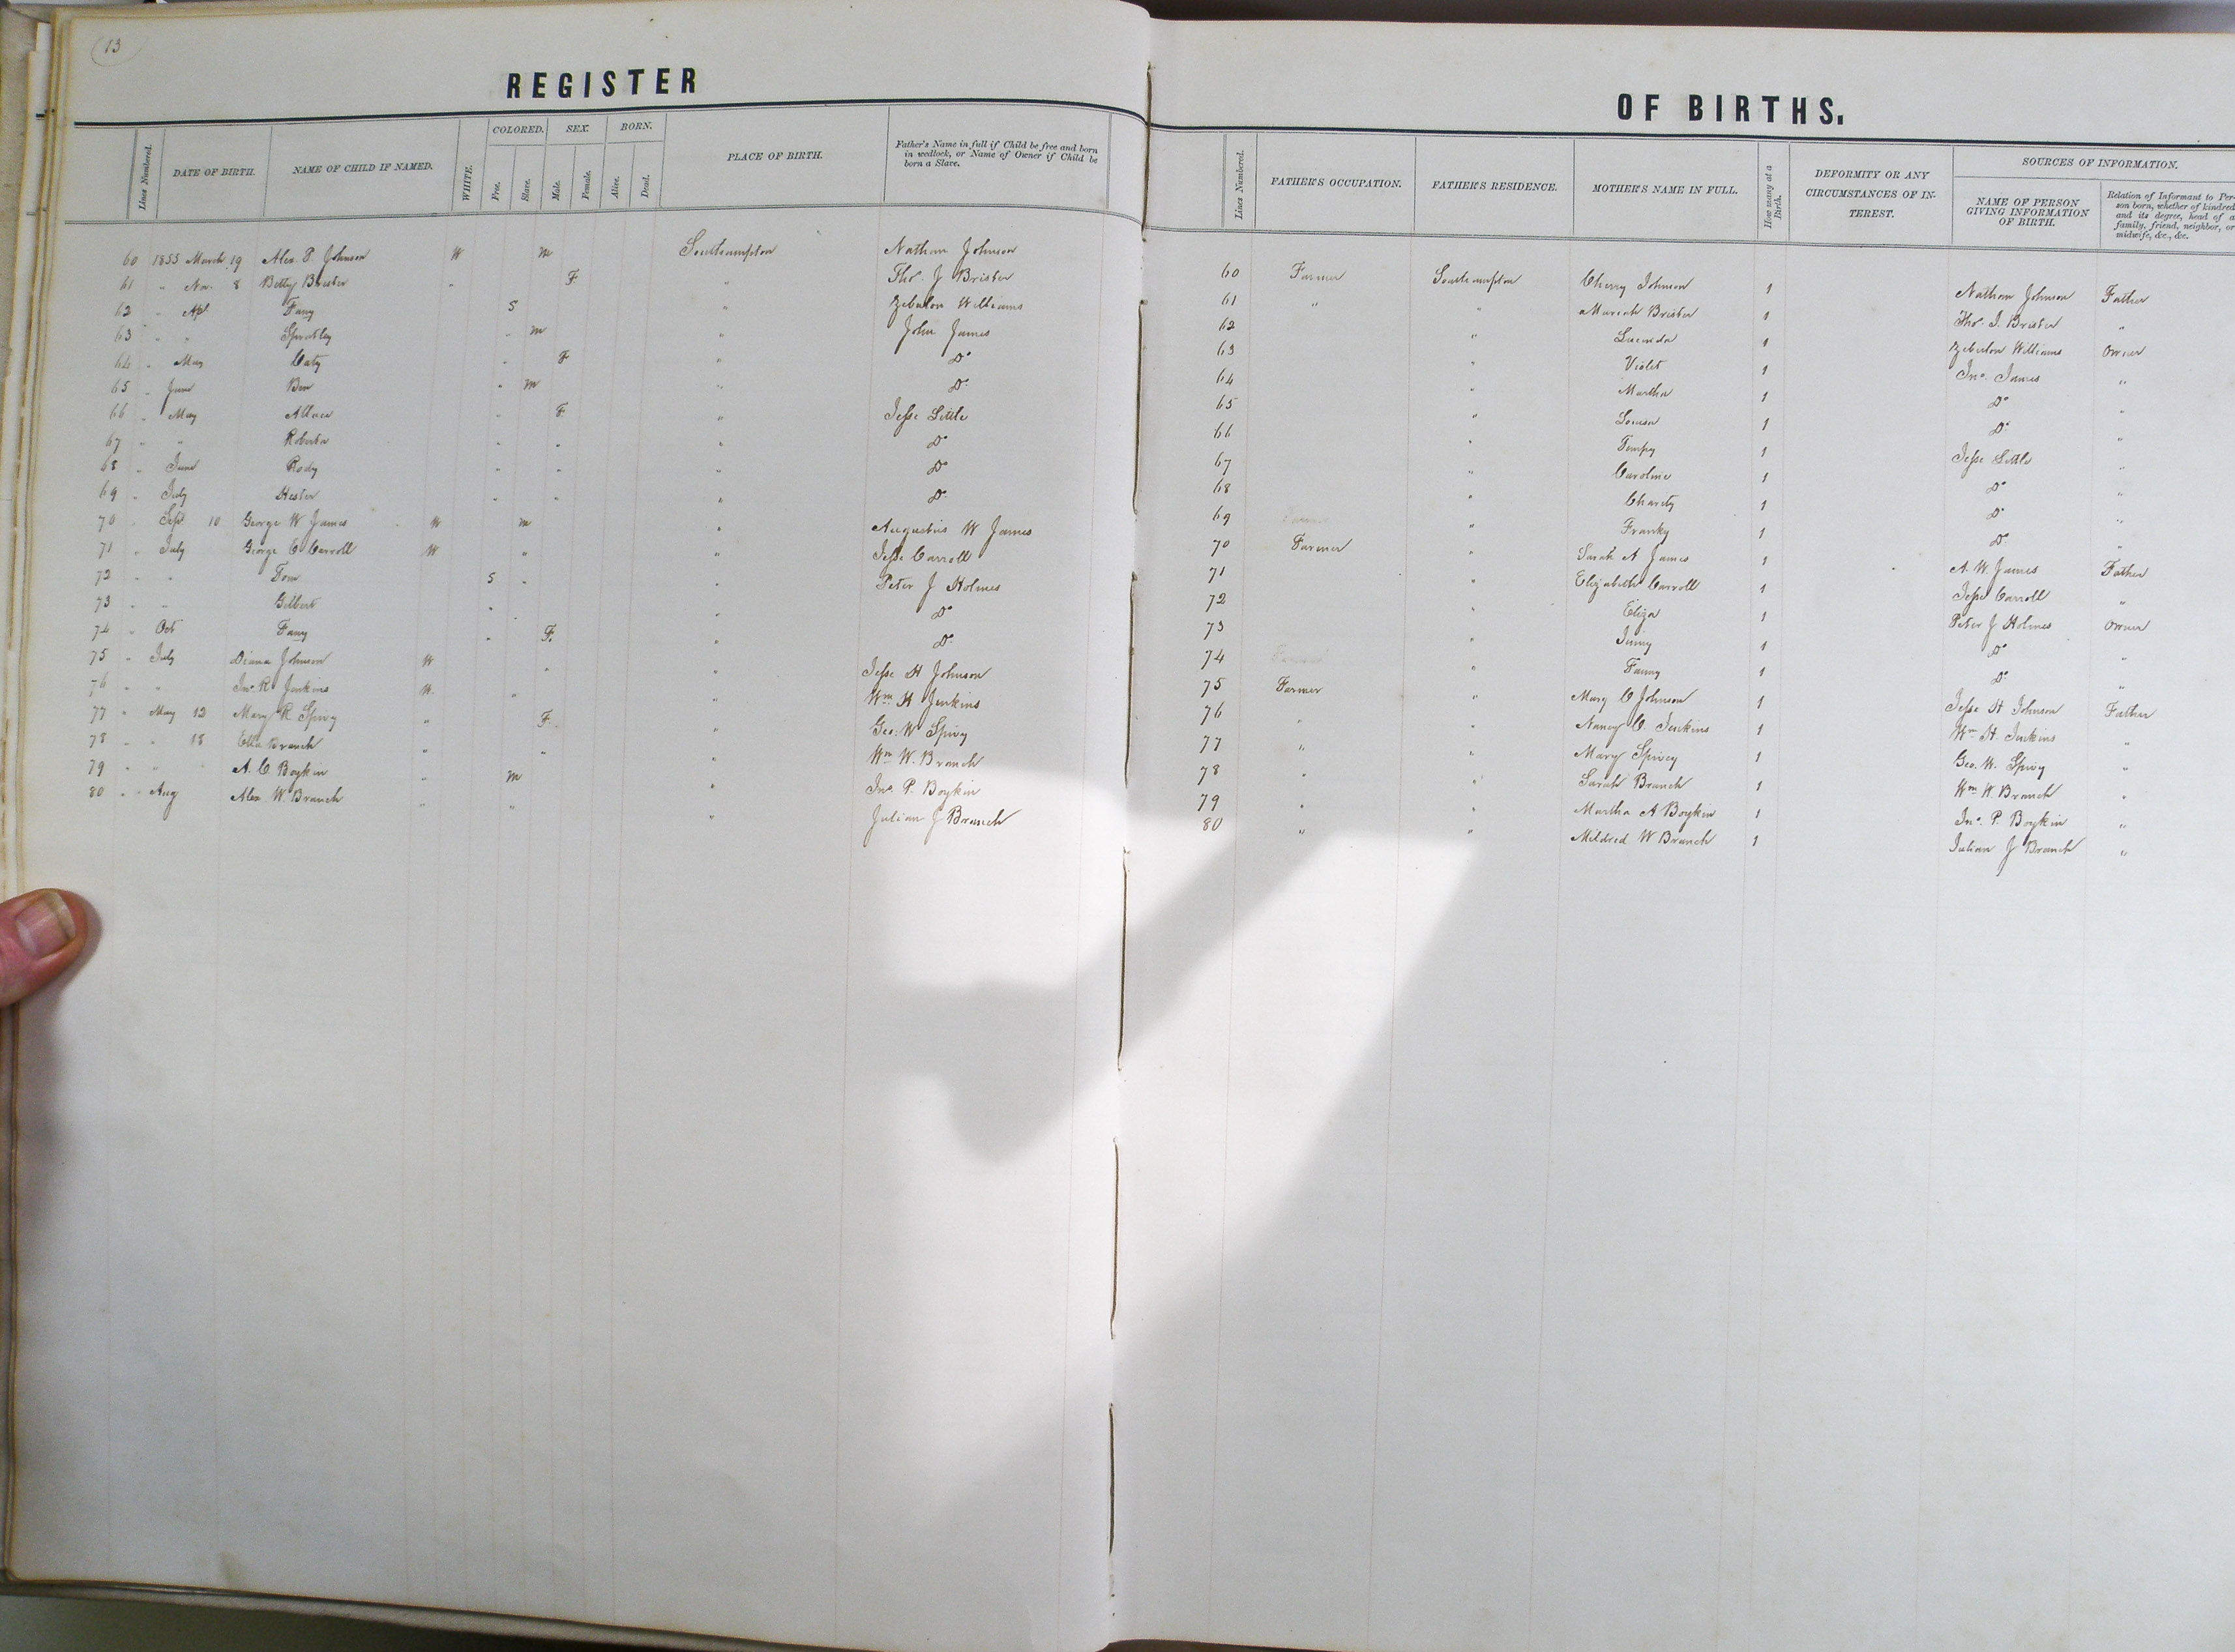 13
REGISTER
Lines Numbered. DATE OF BIRTH. NAME OF CHILD IF NAMED. WHITE. COLORED. Free. Slave. SEX. Male. Female. BORN. Alive. Dead. PLACE OF BIRTH. Father's Name in full if Child be free and born in wedlock, or Name of Owner if Child be born a Slave.
60 1855 March 19 Alex. P. Johnson W m Southampton Nathan Johnson
61 " Nov. 8 Betty Brister " F " Thos. J Brister
62 " Apl Fany S " Zebulon Williams
63 " " Spratley " m " John James
64 " May Caty " F " Do
65 " June Ben " m " Do
66 " May " F " Jesse Little
67 " " Roberta " " " Do
68 " June Rody " " " Do
69 " July Hester " " " Do
70 " Sept 10 George W James W m " Augustus W James
71 " July George E Carroll W " " Jesse Carroll
72 " " Tom S " " Peter J Holmes
73 " " Gilbert " " " Do
74 " Oct Fany " F. " Do
75 " July Diana Johnson W " " Jesse H Johnson
76 " " Jno. R Jenkins W. " " Wm H Jenkins
77 " May 12 Mary R Spivy " F. " Geo. W Spivy
78 " " 18 Ella Branch " " " Wm W. Branch
79 " " A. C. Boykin " m " Jno. P. Boykin
80 " " Aug Alex W. Branch " " " Julian J Branch
OF BIRTHS.
Lines Numbered. FATHER'S OCCUPATION. FATHER'S RESIDENCE. MOTHER'S NAME IN FULL. How many at a Birth. DEFORMITY OR ANY CIRCUMSTANCES OF INTEREST. SOURCES OF INFORMATION. NAME OF PERSON GIVING INFORMATION OF BIRTH. Relation of Informant to Person born, whether of kindred and its degree, head of a family, friend, neighbor, or midwife, &c., &c.
60 Farmer Southampton Cherry Johnson 1 Nathan Johnson Father
61 " " Mariah Brister 1 Thos. J. Brister "
62 " Lucinda 1 Zebulon Williams Owner
63 " Violet 1 Jno. James "
64 " Martha 1 Do "
65 " Louisa 1 Do "
66 " Tempy 1 Jesse Little "
67 " Caroline 1 Do "
68 " Charity 1 Do "
69 " Franky 1 Do "
70 Farmer " Sarah A James 1 A. W. James Father
71 " Elizabeth Carroll 1 Jesse Carroll "
72 " Eliza 1 Peter J Holmes Owner
73 " Jinny 1 Do "
74 " Fanny 1 Do "
75 Farmer " Mary C Johnson 1 Jesse H Johnson Father
76 " " Nancy C. Jenkins 1 Wm H. Jenkins "
77 " " Mary Spivey 1 Geo. W. Spivy "
78 " " Sarah Branch 1 Wm W. Branch "
79 " " Martha A Boykin 1 Jno. P. Boykin "
80 " " Mildred W Branch 1 Julian J Branch "